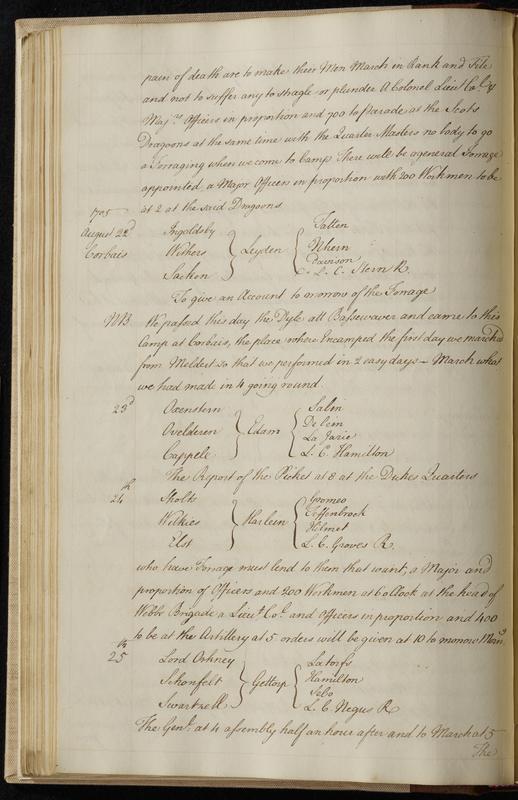 pain of death are to make their Men March in Rank and File
and not to suffer any to stragle or plunder A Colonel Lieut Col. &
Maj.rs Officers in proportion and 700 to parade at the Scots
Dragoons at the same time with the Quarter Masters no body to go
a Forraging when we come to Camp There will be a general Forrage
appointed, a Major Officers in proportion with 200 Workmen to be
at 2 at the said Dragoons
1705
August 22d Ingoldsby Tatten
Corbais Withers Leyden
Sacken Dawson
L. C. Stern R.
To give an Account to morrow of the Forrage
NB. We passed this day the Dyle att Bassewaver and came to this
Camp at Corbais, the place where Incamped the first day we marched
from Meldert so that we performed in 2 easy days March what
we had made in 4 going round.
23d Oxenstern Salin
Ovelderen Edam
Cappele La Jarie
L. C. Hamilton
The Report of the Picket at 8 at the Dukes Quarters
24th Sholts
Wilkies Harlem
Elst Hilmet
L. C. Groves R.
who have Forrage must lend to them that want, a Major and
proportion of Officers and 200 Workmen at 6 o Clock at the head of
Webbs Brigade a Lieut Col. and Officers in proportion and 400
to be at the Artillery at 5 orders will be given at 10 to morrow Morn.g
25th Lord Orkney Latorfs
Schonfelt Gettorp Hamilton
Swartzell Sebo
L. C. Negus R.
The Genl. at 4 assembly half an hour after and to March at 5
The